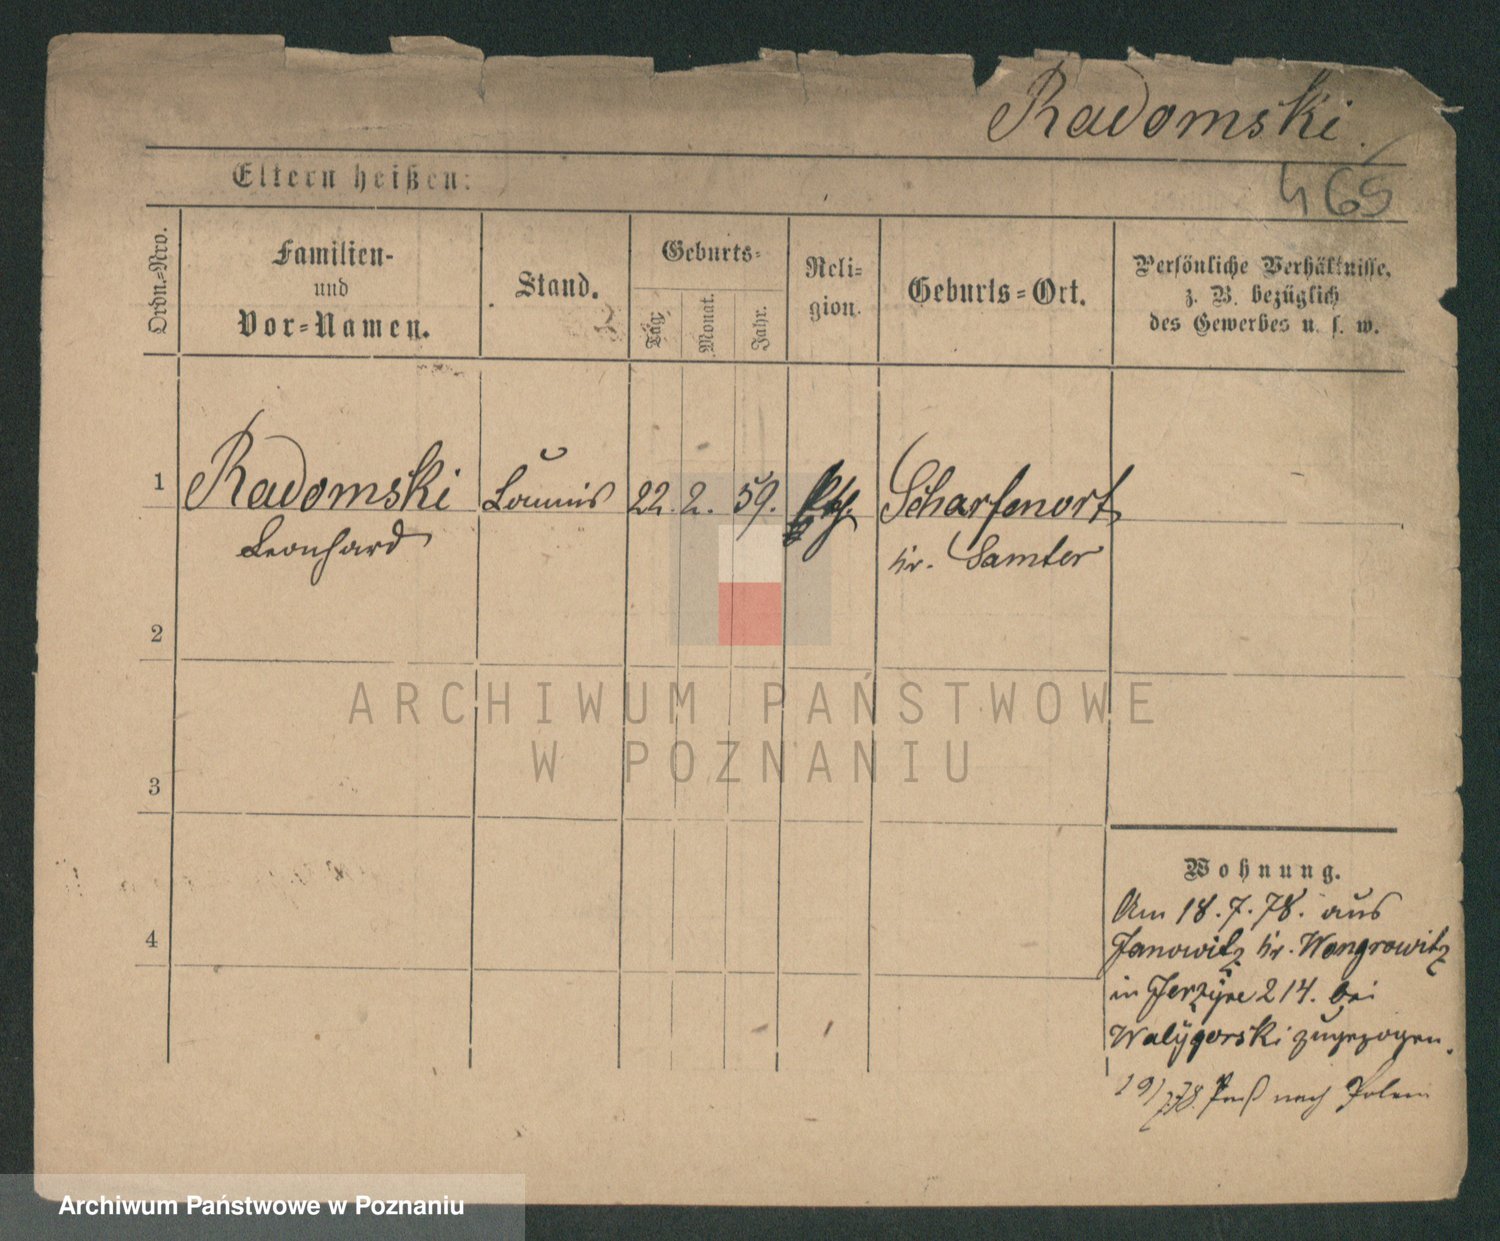 Radomski.
465
Eltern heißen:
Ordn.-Nro.
Familien-
und
Vor-Namen.
Stand.
Geburts-
Tag.
Monat.
Jahr.
Reli-
gion.
Geburts-Ort.
Persönliche Verhältnisse,
z. B. bezüglich
des Gewerbes u. s. w.
1 Radomski 22. 2. 59. Scharfenort
Leonhard Kr. Samter
2
3
4
ARCHIWUM PAŃSTWOWE
W POZNANIU
Wohnung.
Am 18.7.78. aus
Janowitz Kr. Wongrowitz
in 214. bei
zugezogen.
nach Polen
Archiwum Państwowe w Poznaniu